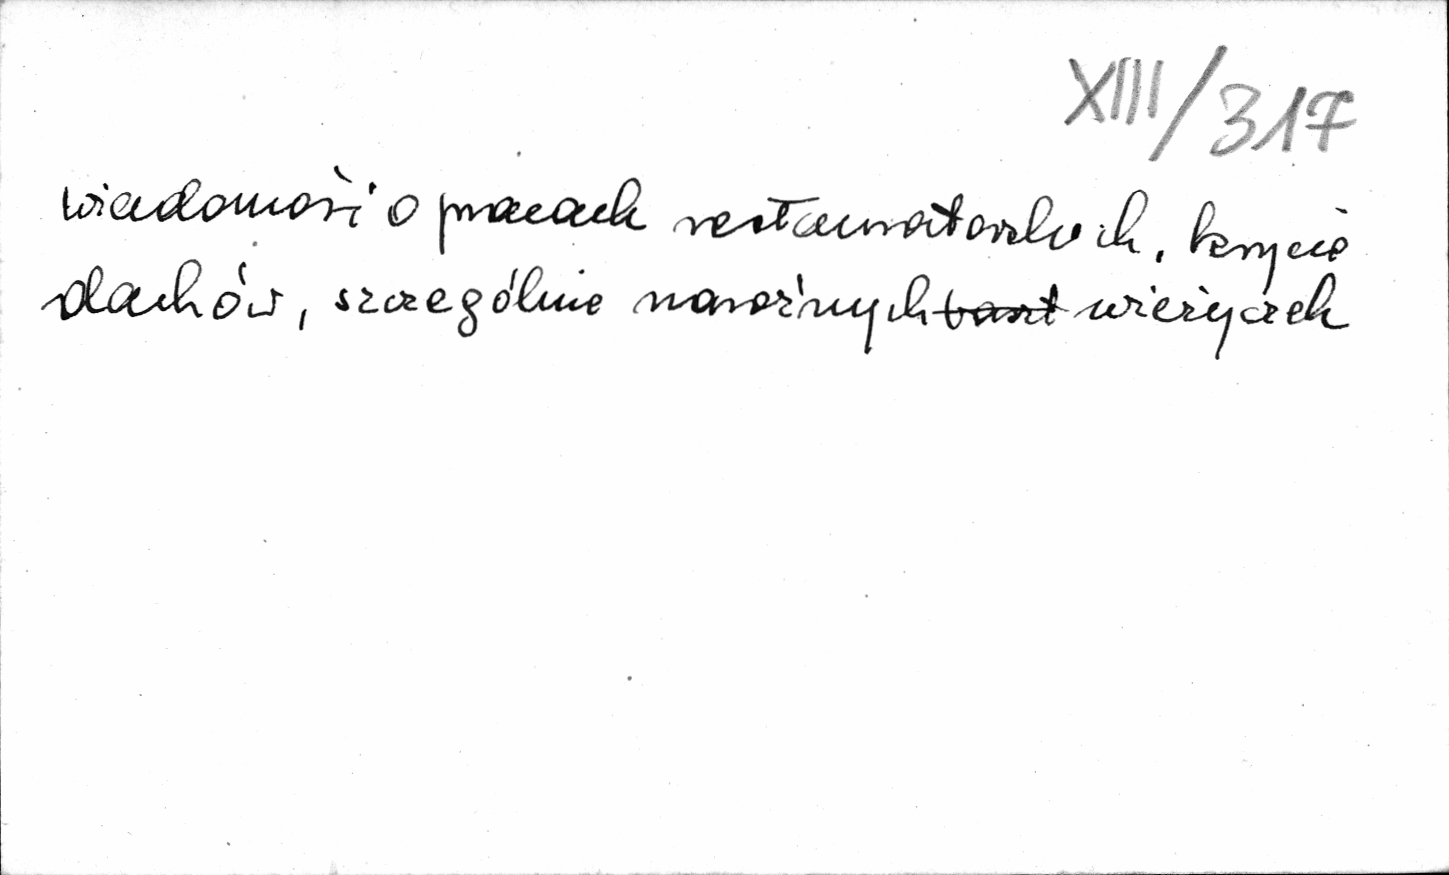 XIII/317
wiadomości o pracach restauratorskich, krycie
dachów, szczególnie narożnych bast wieżyczek